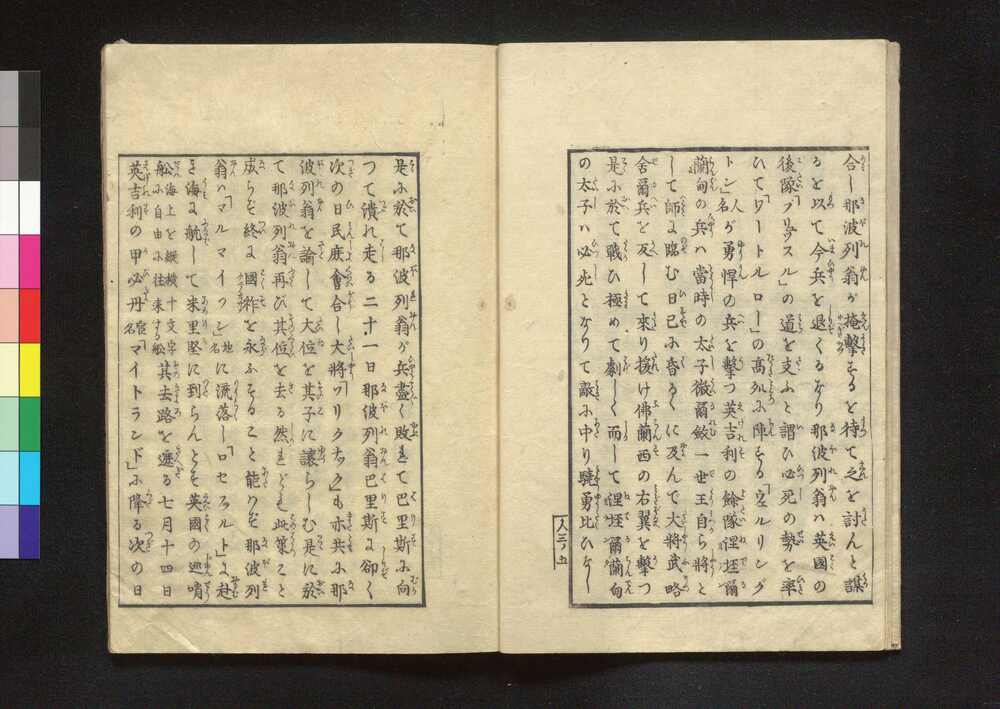 合し那波列翁が掩撃するを待て之を討んと謀
るを以て今兵を退くるなり那波列翁ハ英国の
後隊「ブリュッスル」の道を支ふと謂ひ必死の勢を率
ひて「ワートルロー」の高処に陣する「ウェルリング
トン」人名が勇悍の兵を撃つ英吉利の餘隊俚坯爾
蘭甸の兵ハ當時の太子微爾敏一世王自ら將と
して師に臨む日已に昏るくに及んて大將武略
舎爾兵を反して來り援け佛蘭西の右翼を撃つ
是に於て戰ひ極めて劇しく而して俚坯爾蘭甸
の太子ハ必死となりて敵に中り驍勇比ひなし
人三ノ五
是に於て那波列翁が兵盡く敗れて巴里斯に向
つて潰れ走る二十一日那波列翁巴里斯に卻く
次の日民庶會合し大將も亦共に那
波列翁を諭して大位を其子に讓らしむ是に於
て那波列翁再び其位を去る然れども此策こと
成らず終に國祚を永ふすること能はず那波列
翁ハ「マルマイソン」地名に流落し「ロセフルト」に赴
き海に航して米里堅に到らんとす英國の巡哨
舩海上を縦横十文字に自由に往来する舩其去路を遮る七月十四日
英吉利の甲必丹官名「マイトランド」に降る次の日